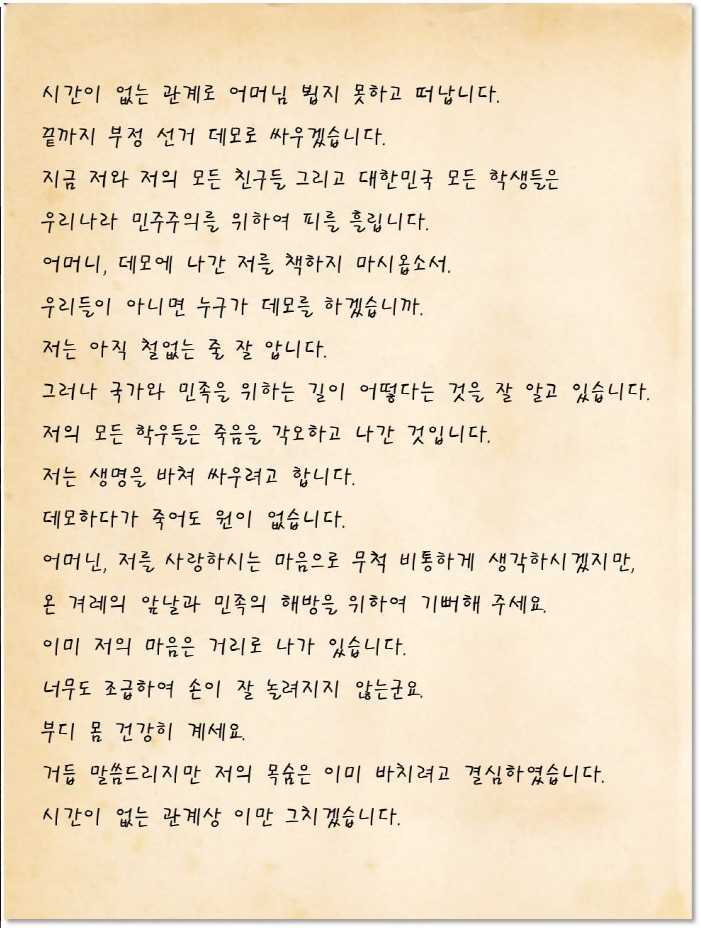 시간이 없는 관계로 어머님 뵙지 못하고 떠납니다.
끝까지 부정 선거 데모로 싸우겠습니다.
지금 저와 저의 모든 친구들 그리고 대한민국 모든 학생들은
우리나라 민주주의를 위하여 피를 흘립니다.
어머니, 데모에 나간 저를 책하지 마시옵소서.
우리들이 아니면 누구가 데모를 하겠습니까.
저는 아직 철없는 줄 잘 압니다.
그러나 국가와 민족을 위하는 길이 어떻다는 것을 잘 알고 있습니다.
저의 모든 학우들은 죽음을 각오하고 나간 것입니다.
저는 생명을 바쳐 싸우려고 합니다.
데모하다가 죽어도 원이 없습니다.
어머닌, 저를 사랑하시는 마음으로 무척 비통하게 생각하시겠지만,
온 겨레의 앞날과 민족의 해방을 위하여 기뻐해 주세요.
이미 저의 마음은 거리로 나가 있습니다.
너무도 조급하여 손이 잘 놀려지지 않는군요.
부디 몸 건강히 계세요.
거듭 말씀드리지만 저의 목숨은 이미 바치려고 결심하였습니다.
시간이 없는 관계상 이만 그치겠습니다.